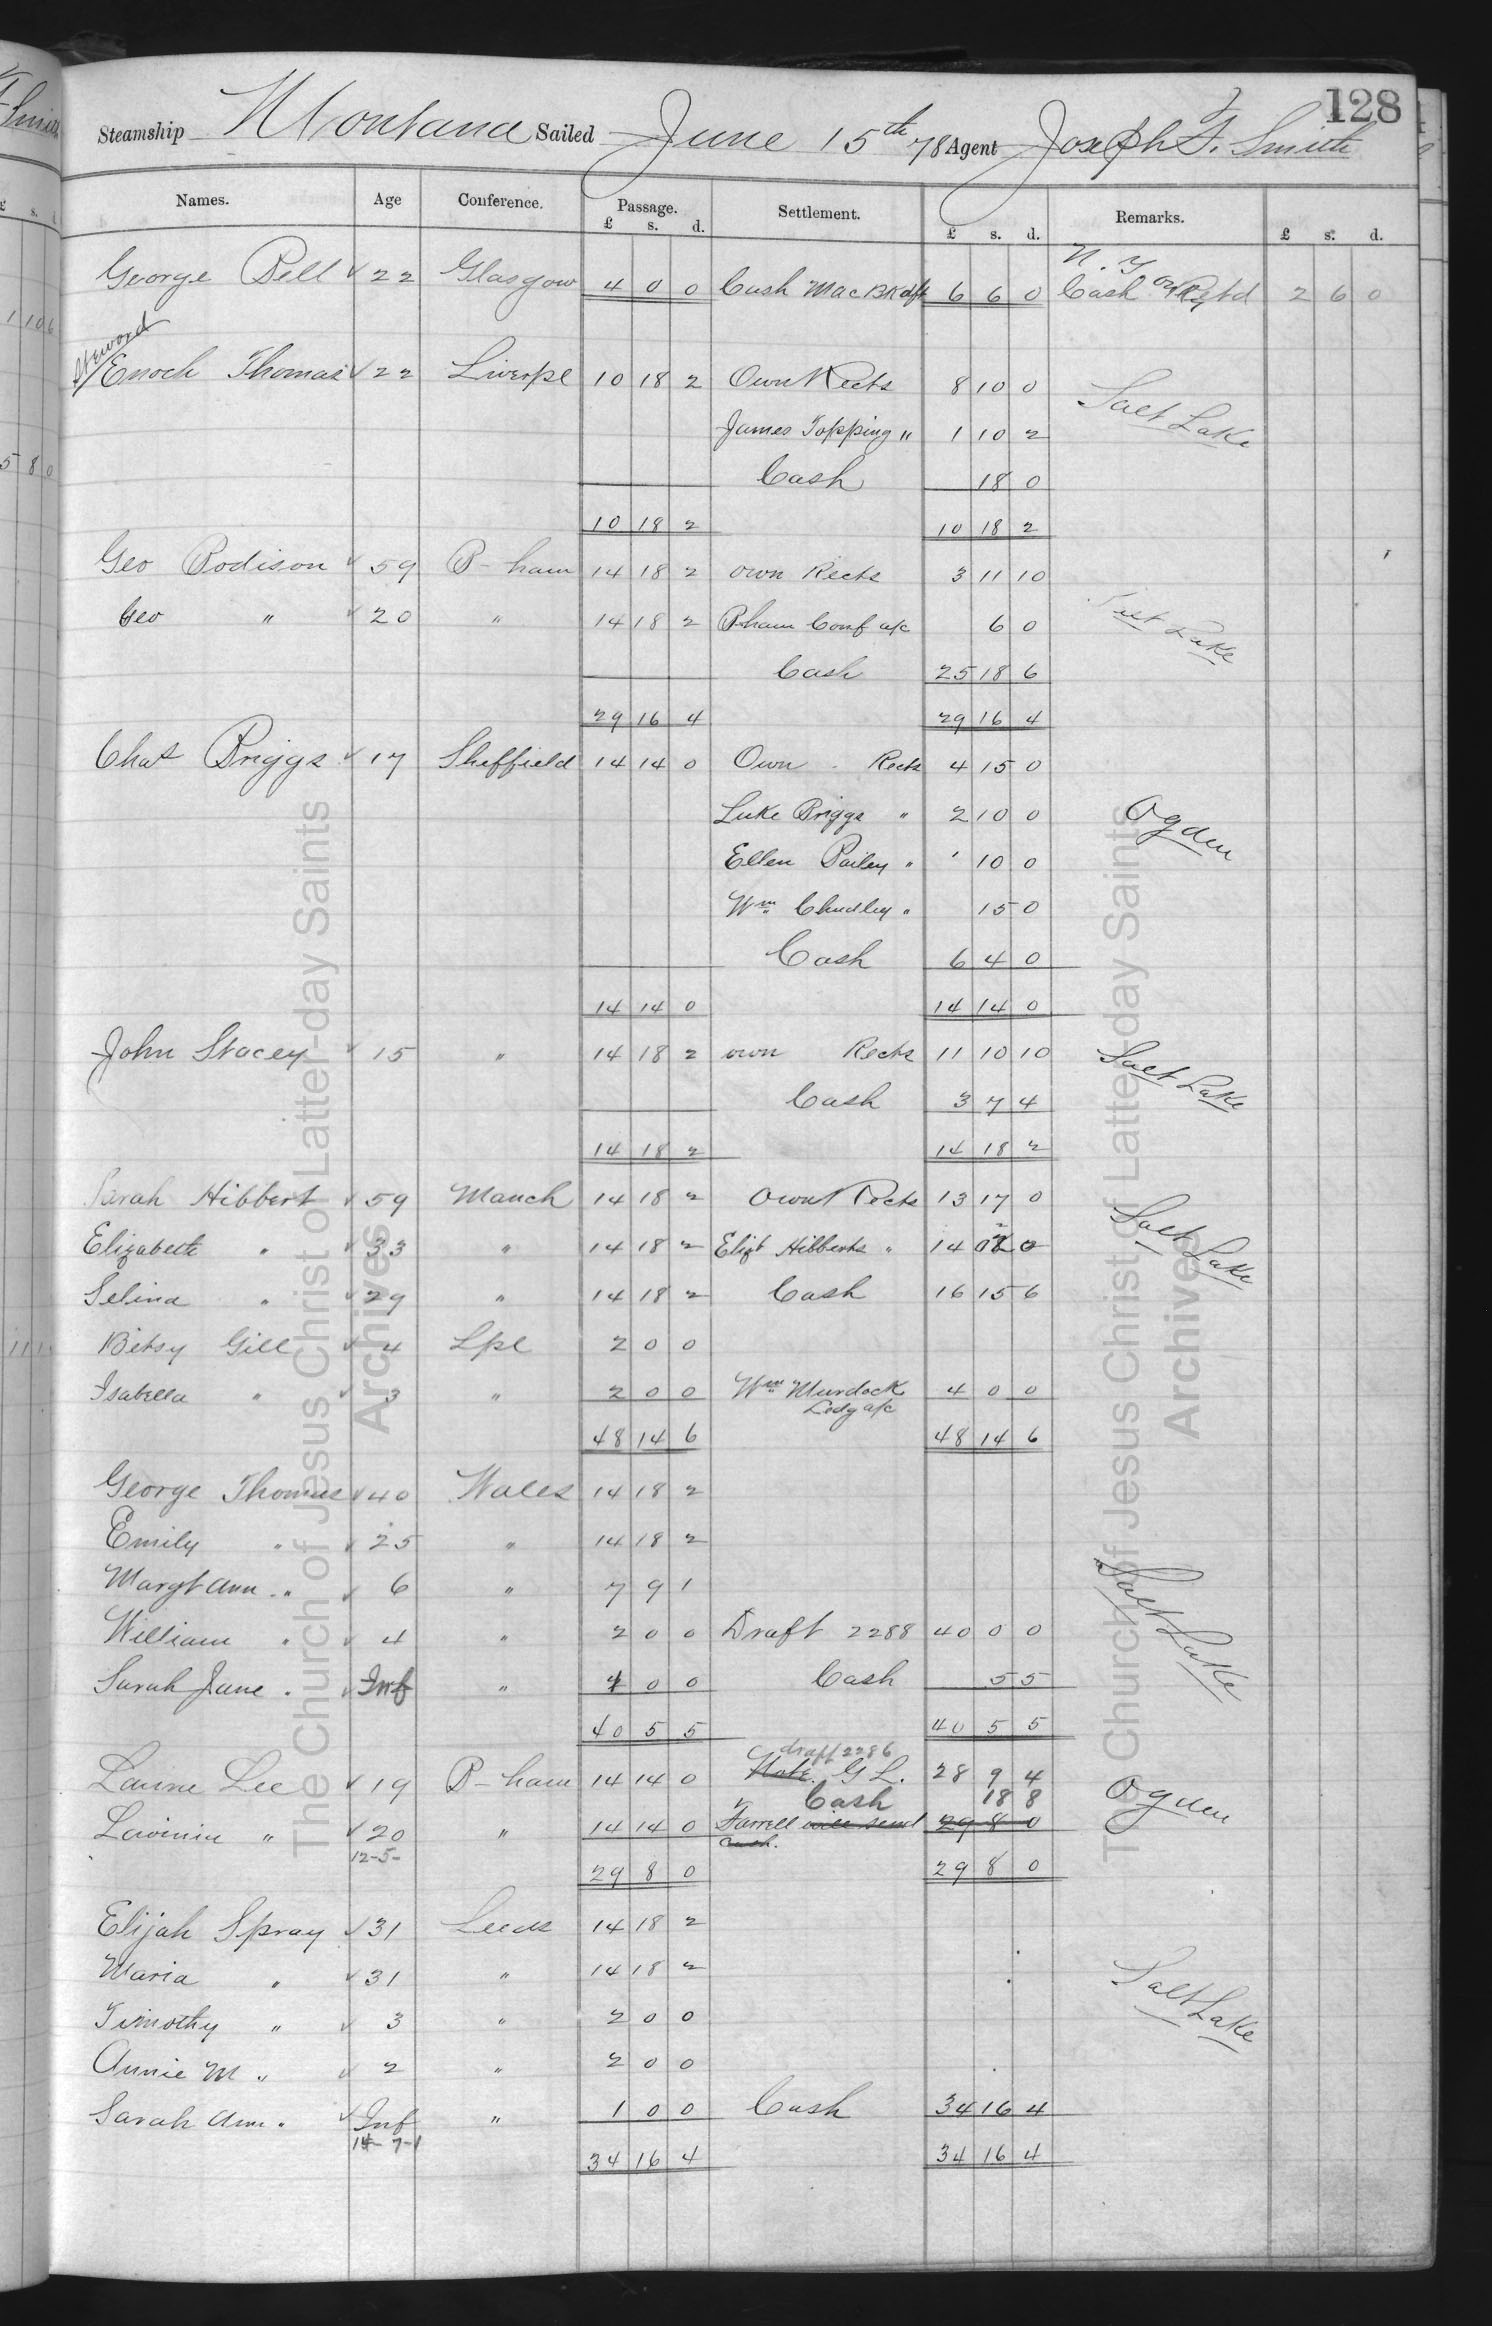 128
Steamship Montana Sailed June 15th 78 Agent Joseph F. Smith
Names. Age Conference. Passage. Settlement. Remarks.
£ s. d. £ s. d. £ s. d.
N. Y
George Bell √ 22 Glasgow 4 0 0 Cash Mac BK dft 6 6 0 Cash 2 6 0
Steward
Enoch Thomas √ 22 Liverpl 10 18 2 Own Rects 8 10 0 Salt Lake
James Topping " 1 10 2
Cash 18 0
10 18 2 10 18 2
Geo Bodison √ 59 B-ham 14 18 2 own Rects 3 11 10
Geo " √ 20 " 14 18 2 Bham Conf a/c 6 0 Salt Lake
Cash 25 18 6
29 16 4 29 16 4
Chas Briggs √ 17 Sheffield 14 14 0 Own Rects 4 15 0
Luke Briggs " 2 10 0 Ogden
Ellen Bailey " 10 0
Wm Chudley " 15 0
Cash 6 4 0
14 14 0 14 14 0
John Stacey √ 15 " 14 18 2 own Rects 11 10 10 Salt Lake
Cash 3 7 4
14 18 2 14 18 2
Sarah Hibbert √ 59 Manch 14 18 2 Own Rects 13 17 0 Salt Lake
Elizabeth " √ 33 " 14 18 2 Elizt Hibberts " 14 2 0
Selina " √ 29 " 14 18 2 Cash 16 15 6
Betsy Gill √ 4 Lpl 2 0 0
Isabella " √ 3 " 2 0 0 Wm Murdock 4 0 0
Ledg a/c
48 14 6 48 14 6
George Thomas √ 40 Wales 14 18 2
Emily " √ 25 " 14 18 2
Margt Ann " √ 6 " 7 9 1 Salt Lake
William " √ 4 " 2 0 0 Draft 2288 40 0 0
Sarah Jane " √ Inf " 1 0 0 Cash 5 5
40 5 5 40 5 5
draft 2286
Laura Lee √ 19 B-ham 14 14 0 Note G L. 28 9 4 Ogden
Cash 18 8
Lavinia " √ 20 " 14 14 0 Farrell will send 29 8 0
cash.
12-5-
29 8 0 29 8 0
Elijah Spray √ 31 Leeds 14 18 2
Maria " √ 31 " 14 18 2 Salt Lake
Timothy " √ 3 " 2 0 0
Annie M " √ 2 " 2 0 0
Sarah Ann " √ Inf " 1 0 0 Cash 34 16 4
14-7-1
34 16 4 34 16 4
The Church of Jesus Christ of Latter-day Saints
Archives
The Church of Jesus Christ of Latter-day Saints
Archives